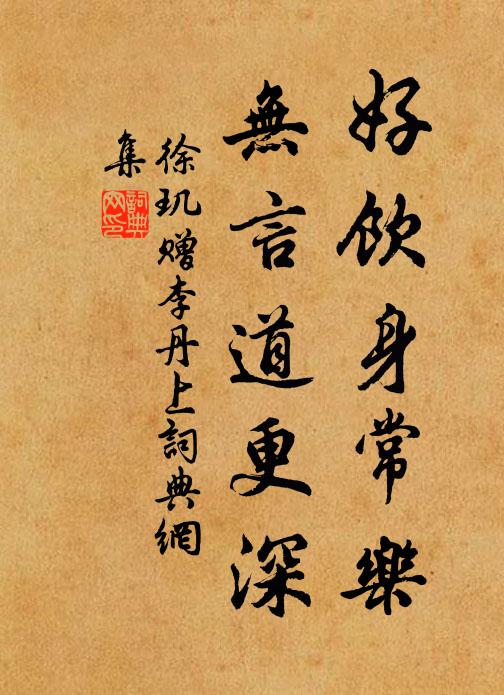 好飲身常樂
無言道更深
徐玑赠李丹上詞典網
集
詞典
网印